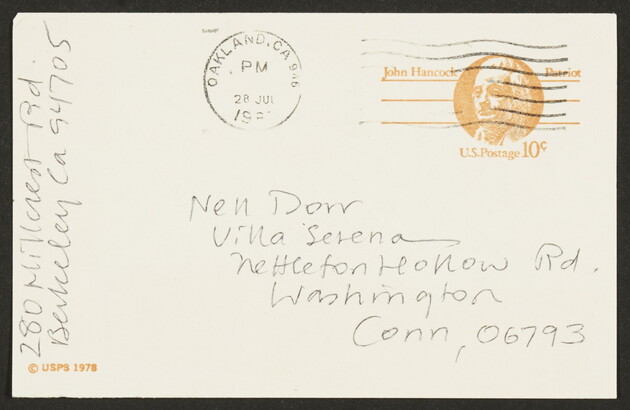 OAKLAND, CA 946
PM
28 JUL
John Hancock Patriot
U.S. Postage 10¢
Nell Dorr
Villa Serena
Nettleton Hollow Rd.
Washington
Conn, 06793
280 Hillcrest Rd.
Berkeley Ca 94705
© USPS 1978